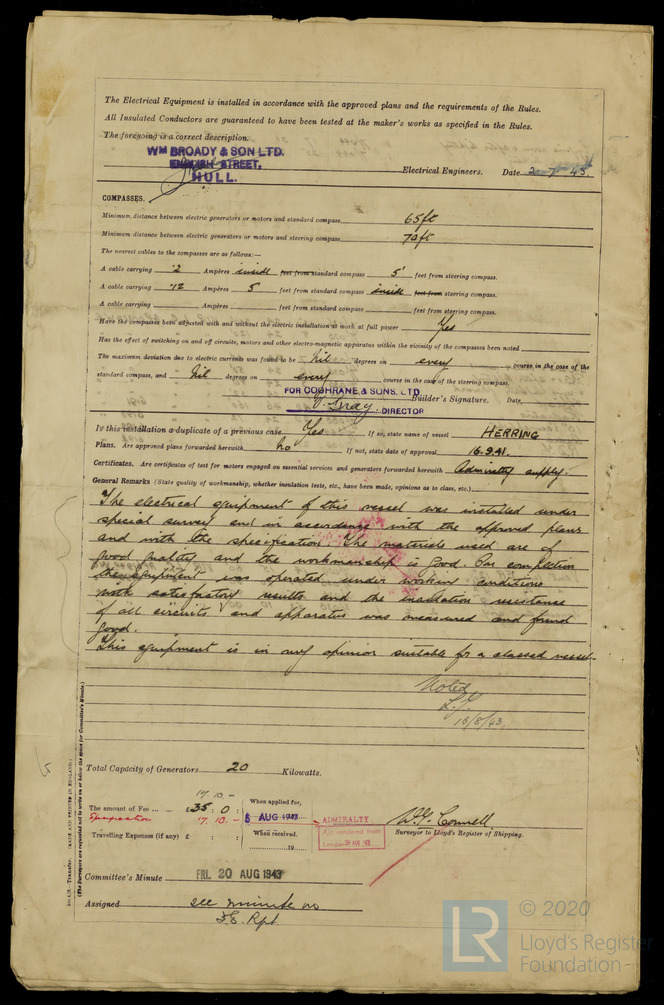 The Electrical Equipment is installed in accordance with the approved plans and the requirements of the Rules.
All Insulated Conductors are guaranteed to have been tested at the maker's works as specified in the Rules.
The foregoing is a correct description.
WM BROADY & SON LTD.
ENGLISH STREET,
HULL.
Electrical Engineers. Date 2-7-43.
COMPASSES.
Minimum distance between electric generators or motors and standard compass 65ft
Minimum distance between electric generators or motors and steering compass 70ft
The nearest cables to the compasses are as follows:—
A cable carrying ·2 Ampères inside feet from standard compass 5' feet from steering compass.
A cable carrying ·12 Ampères 5 feet from standard compass inside feet from steering compass.
A cable carrying Ampères feet from standard compass feet from steering compass.
Have the compasses been adjusted with and without the electric installation at work at full power Yes
Has the effect of switching on and off circuits, motors and other electro-magnetic apparatus within the vicinity of the compasses been noted
The maximum deviation due to electric currents was found to be nil degrees on every course in the case of the
standard compass, and Nil degrees on every course in the case of the steering compass.
FOR COCHRANE & SONS, LTD
Gray Builder's Signature. Date
DIRECTOR
Is this installation a duplicate of a previous case Yes If so, state name of vessel HERRING
Plans. Are approved plans forwarded herewith No If not, state date of approval 16.9.41.
Certificates. Are certificates of test for motors engaged on essential services and generators forwarded herewith Admiralty supply.
General Remarks (State quality of workmanship, whether insulation tests, etc., have been made, opinions as to class, etc.)
The electrical equipment of this vessel was installed under
special survey and in accordance with the approved plans
and with the specification. The materials used are of
good quality and the workmanship is good. On completion
the equipment was operated under working conditions
with satisfactory results and the insulation resistance
of all circuits and apparatus was measured and found
good.
This equipment is in my opinion suitable for a classed vessel.
Noted
18/8/43.
Total Capacity of Generators 20 Kilowatts.
17.10.-
The amount of Fee £35 : 0 :
17.10.-
When applied for,
6 AUG 1943
Travelling Expenses (if any) £ : :
When received,
19
ADMIRALTY
A/c rendered from
London
Connell
Surveyor to Lloyd's Register of Shipping.
Committee's Minute FRI. 20 AUG 1943
Assigned see minute on
F.E. Rpt.
(The Surveyors are requested not to write on or below the space for Committee's Minute.)
(MADE AND PRINTED IN ENGLAND.)
Transfer.
LR
© 2020
Lloyd's Register
Foundation